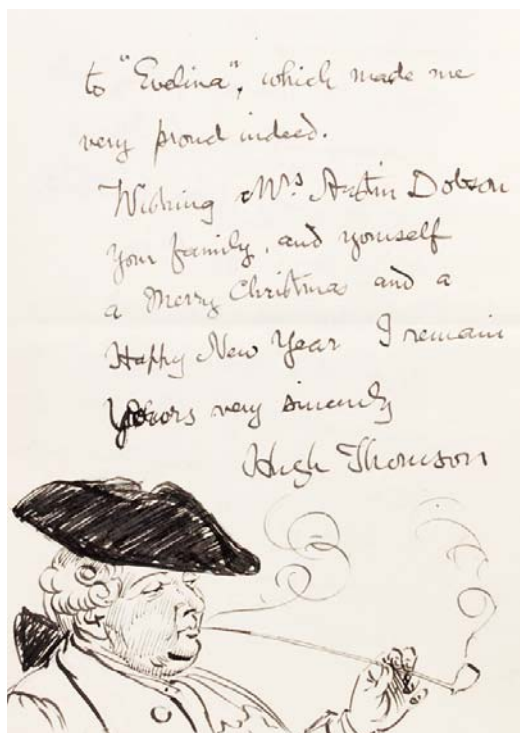 to "Evelina", which made me
very proud indeed.
Wishing Mrs Austin Dobson
your family, and yourself
a Merry Christmas and a
Happy New Year I remain
Yours very sincerely
Hugh Thomson